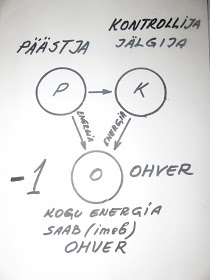 KONTROLLIJA
PÄÄSTJA JÄLGIJA
P K
ENERGIA ENERGIA
-1 O OHVER
KOGU ENERGIA
SAAB (imeb)
OHVER